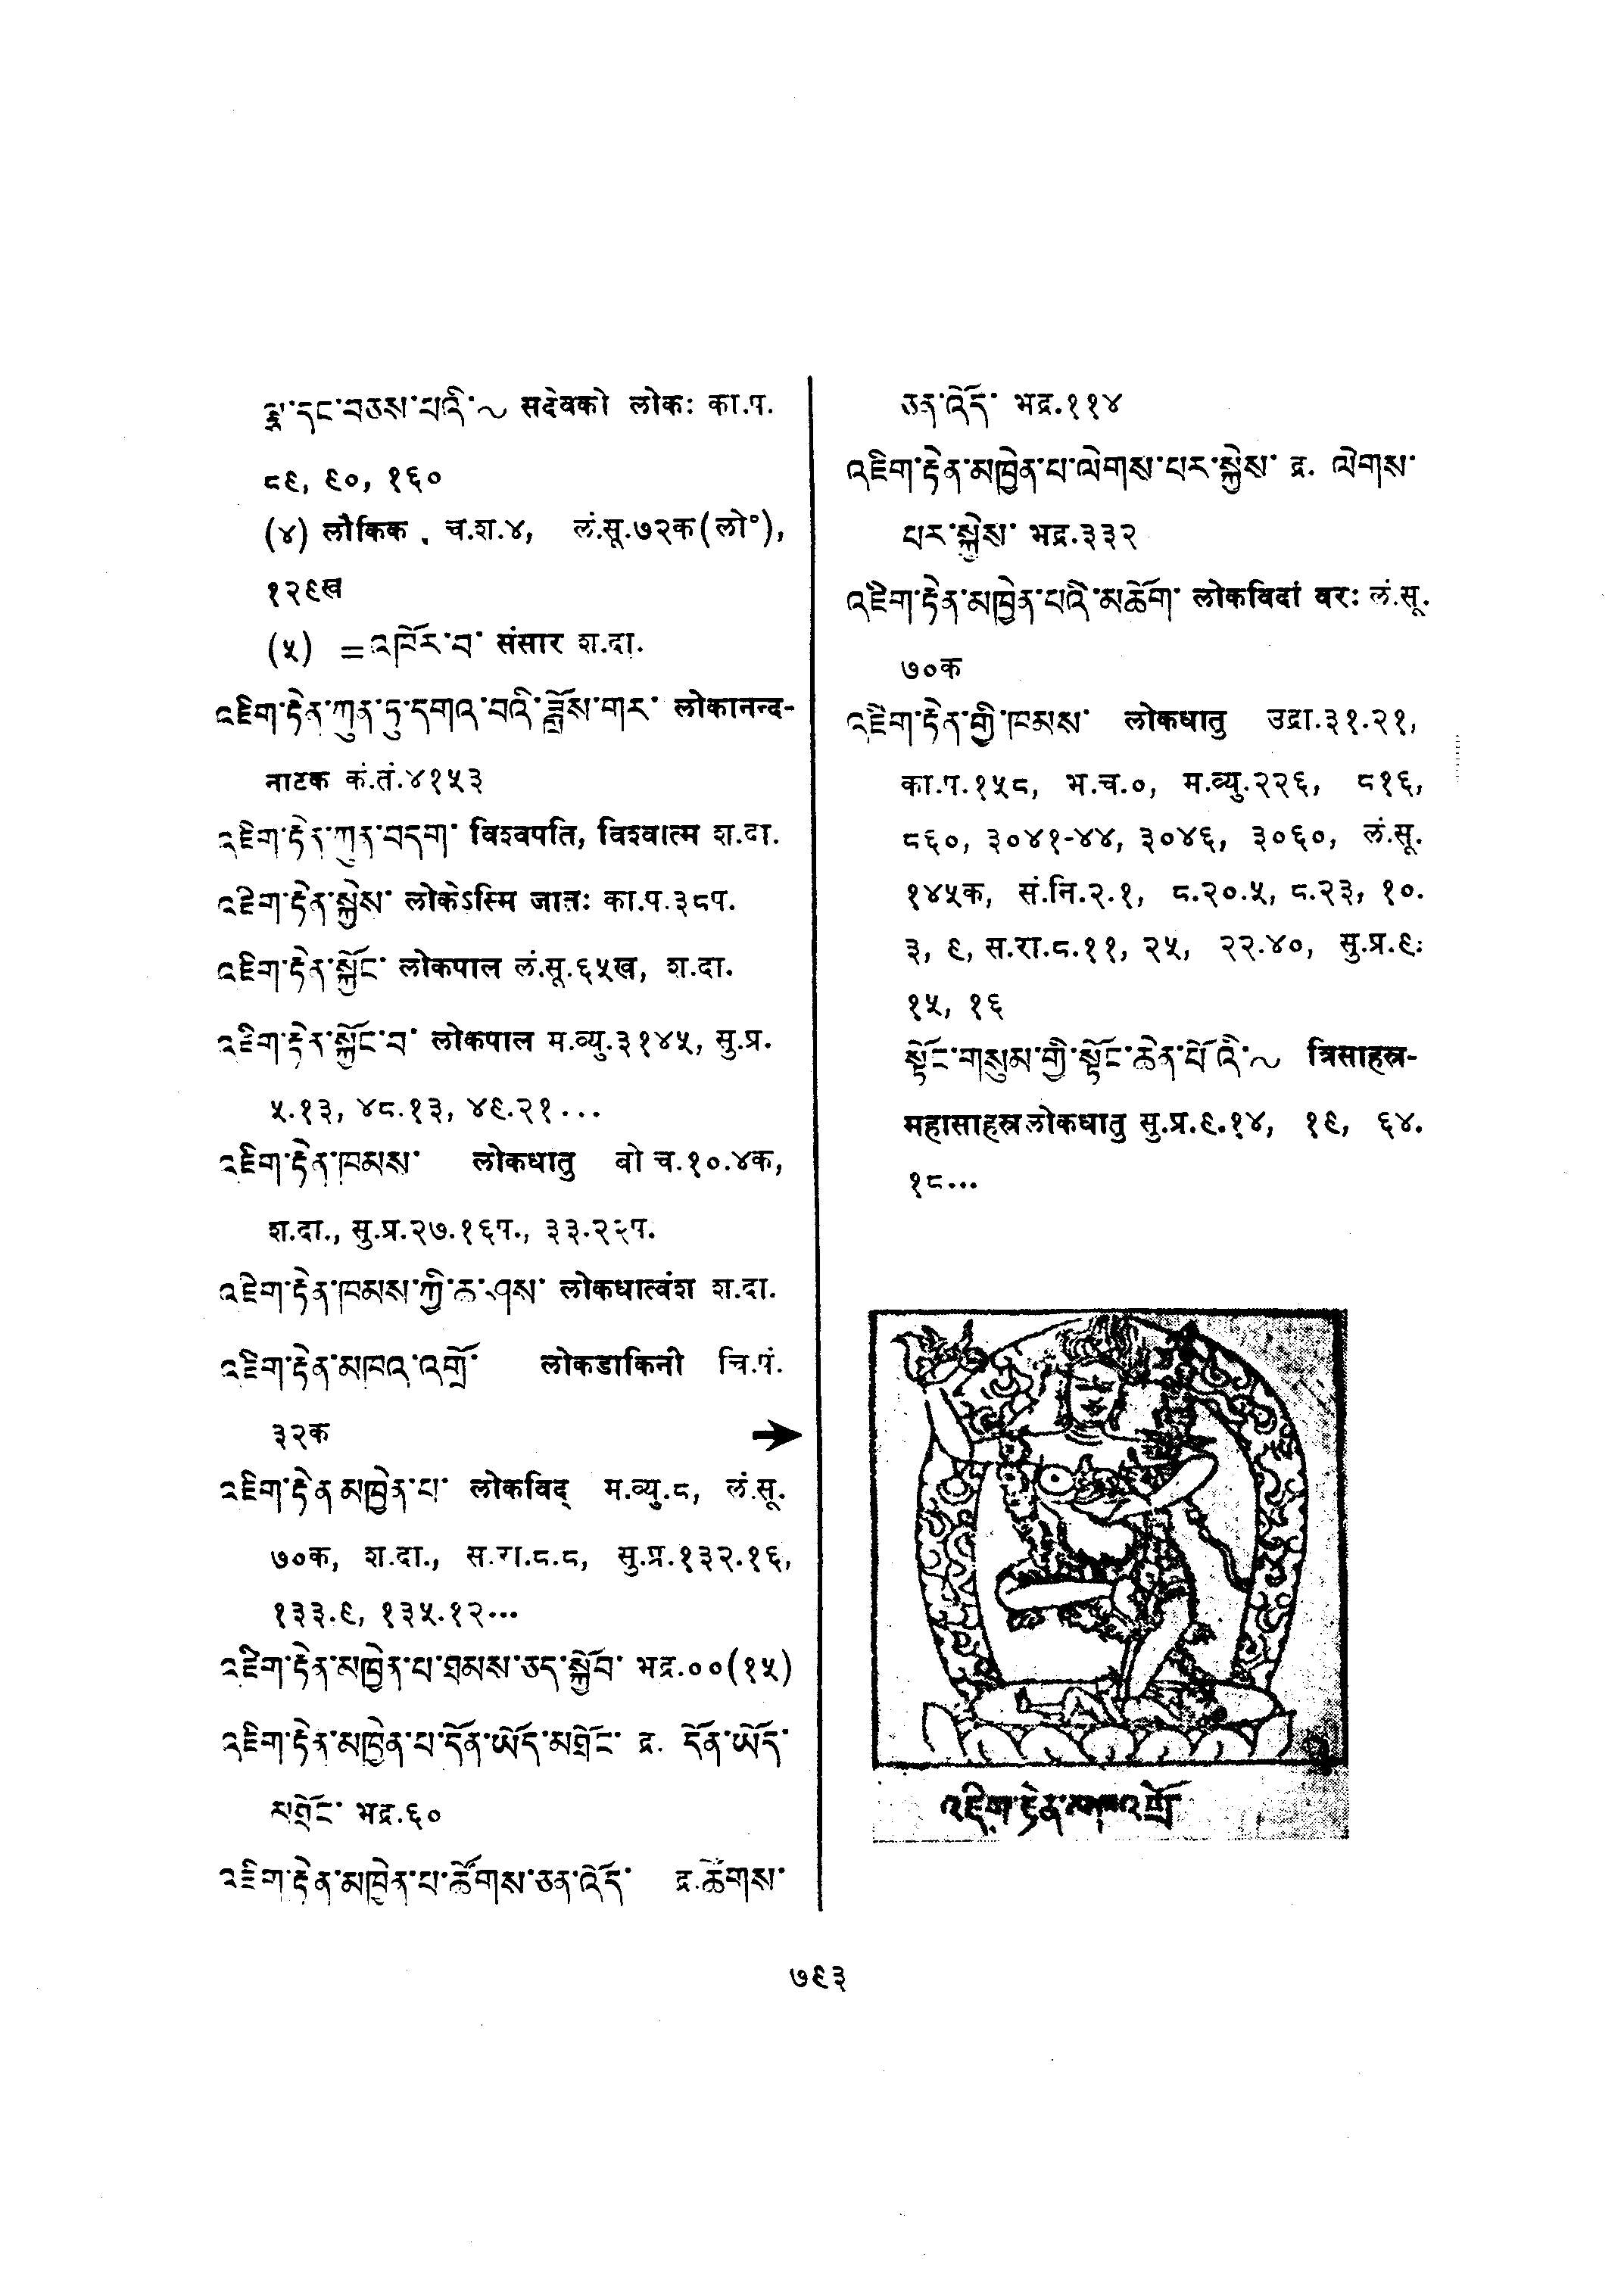 ལྷ་དང་བཅས་པའི་～ सदेवको लोकः का.प.
८९, ९०, १६०
(४) लौकिक . च.श.४, लं.सू.७२क(लो°),
१२९ख
(५) =འཁོར་བ་ संसार श.दा.
འཇིག་རྟེན་ཀུན་ཏུ་དགའ་བའི་ཟློས་གར་ लोकानन्द-
नाटक कं.तं.४१५३
འཇིག་རྟེན་ཀུན་བདག་ विश्वपति, विश्वात्म श.दा.
འཇིག་རྟེན་སྐྱེས་ लोकेऽस्मि जातः का.प.३८प.
འཇིག་རྟེན་སྐྱོང་ लोकपाल लं.सू.६५ख, श.दा.
འཇིག་རྟེན་སྐྱོང་བ་ लोकपाल म.व्यु.३१४५, सु.प्र.
५.१३, ४८.१३, ४९.२१...
འཇིག་རྟེན་ཁམས་ लोकधातु बो च.१०.४क,
श.दा., सु.प्र.२७.१६प., ३३.२२प.
འཇིག་རྟེན་ཁམས་ཀྱི་ཆ་ཤས་ लोकधात्वंश श.दा.
འཇིག་རྟེན་མཁའ་འགྲོ་ लोकडाकिनी चि.पं.
३२क →
འཇིག་རྟེན་མཁྱེན་པ་ लोकविद् म.व्यु.८, लं.सू.
७०क, श.दा., स.रा.८.८, सु.प्र.१३२.१६,
१३३.९, १३५.१२...
འཇིག་རྟེན་མཁྱེན་པ་ཐམས་ཅད་སྐྱོབ་ भद्र.००(१५)
འཇིག་རྟེན་མཁྱེན་པ་དོན་ཡོད་མགྲོང་ द्र. དོན་ཡོད་
མགྲོང་ भद्र.६०
འཇིག་རྟེན་མཁྱེན་པ་ཚོགས་ཅན་འོད་ द्र.ཚོགས་
ཅན་འོད་ भद्र.११४
འཇིག་རྟེན་མཁྱེན་པ་ལེགས་པར་སྐྱེས་ द्र. ལེགས་
པར་སྐྱེས་ भद्र.३३२
འཇིག་རྟེན་མཁྱེན་པའི་མཆོག་ लोकविदां वरः लं.सू.
७०क
འཇིག་རྟེན་གྱི་ཁམས་ लोकधातु उद्रा.३१.२१,
का.प.१५८, भ.च.०, म.व्यु.२२६, ८१६,
८६०, ३०४१-४४, ३०४६, ३०६०, लं.सू.
१४५क, सं.नि.२.१, ८.२०.५, ८.२३, १०.
३, ९, स.रा.८.११, २५, २२.४०, सु.प्र.९:
१५, १६
སྟོང་གསུམ་གྱི་སྟོང་ཆེན་པོའི་～ त्रिसाहस्र-
महासाहस्रलोकधातु सु.प्र.९.१४, १९, ६४.
१८...
འཇིག་རྟེན་མཁའ་འགྲོ
७९३